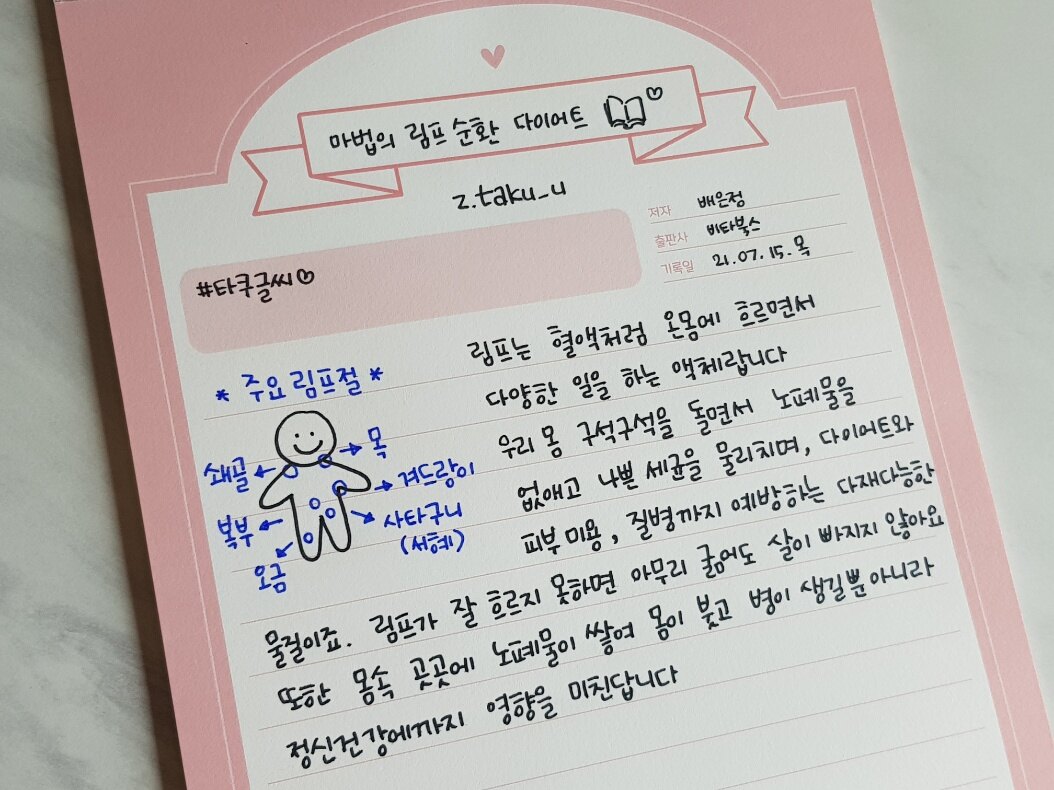 마법의 림프 순환 다이어트
z.taku_u
저자 배은정
출판사 비타북스
기록일 21.07.15.목
#타쿠글씨
* 주요 림프절 *
목
쇄골
겨드랑이
복부
사타구니
(서혜)
오금
림프는 혈액처럼 온몸에 흐르면서
다양한 일을 하는 액체랍니다
우리 몸 구석구석을 돌면서 노폐물을
없애고 나쁜 세균을 물리치며, 다이어트와
피부미용, 질병까지 예방하는 다재다능한
물질이죠. 림프가 잘 흐르지 못하면 아무리 굶어도 살이 빠지지 않아요
또한 몸속 곳곳에 노폐물이 쌓여 몸이 붓고 병이 생길뿐아니라
정신건강에까지 영향을 미친답니다